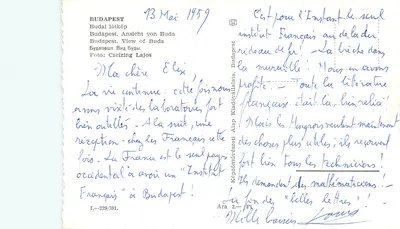 13 Mai 1959
BUDAPEST
Budai látkép
Budapest, Ansicht von Buda
Budapest, View of Buda
Будапешт, Вид Буды
Foto: Czeizing Lajos
Ma chère Elise,
La vie continue. Cette fois nous
avons visité des laboratoires fort
bien outillés. À la suite, une
réception - chez des Français cette
fois. La France est le seul pays
occidental à avoir un "Institut
Français" à Budapest!
I.—229/591.
Képzőművészeti Alap Kiadóvállalata, Budapest
Ara 2.— Ft
C'est pour l'Instant le seul
institut Français au delà du
rideau de fer! - La brèche dans
la muraille! Nous en avons
profité. - Toute la littérature
française était là, bien reliée!
Mais les Hongrois veulent maintenant
des choses plus utiles; ils reçoivent
fort bien tous les techniciens!
Ils demandent des mathématiciens!
la fin des "belles lettres"!
Mille baisers